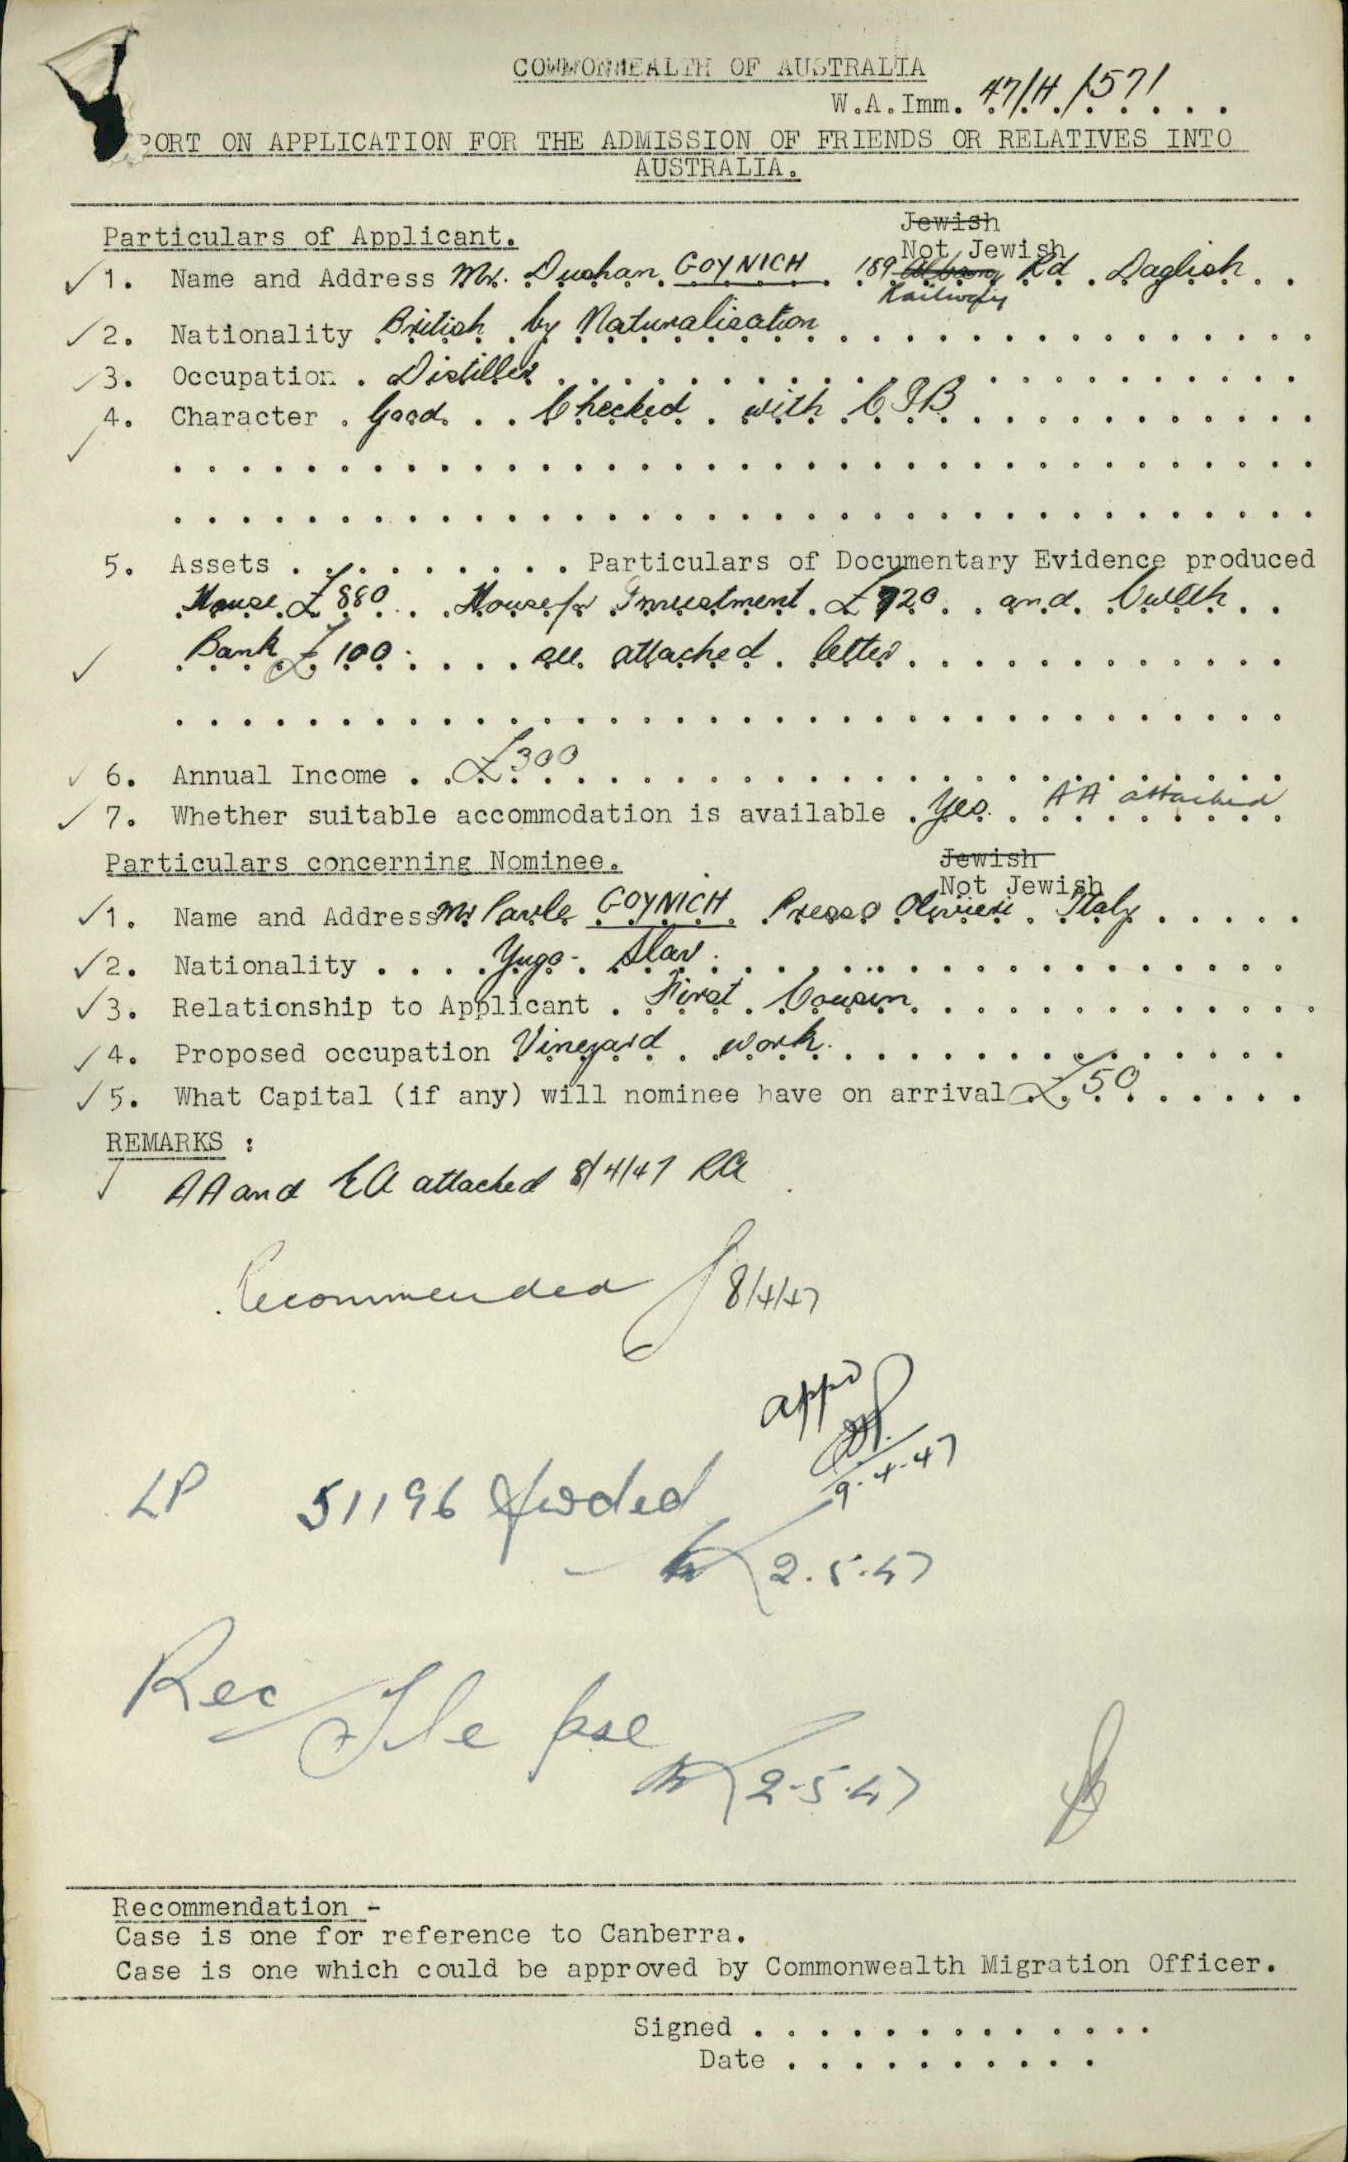 COMMONWEALTH OF AUSTRALIA
W.A.Imm. 47/H/571
PORT ON APPLICATION FOR THE ADMISSION OF FRIENDS OR RELATIVES INTO
AUSTRALIA.
Jewish
Particulars of Applicant.
Not Jewish
✓ 1. Name and Address Mr. Dushan GOYNICH 189 Albany Rd Daglish
Railway
✓ 2. Nationality British by Naturalisation
✓ 3. Occupation . Distiller
✓ 4. Character . Good . . Checked . with CIB
5. Assets . . . . . . . . . Particulars of Documentary Evidence produced
House £880 . . House for Investment £720 . . and C'wlth
✓ Bank £100 . . . . see attached letter
✓ 6. Annual Income . . £300
✓ 7. Whether suitable accommodation is available . Yes. AA attached
Particulars concerning Nominee.
Jewish
Not Jewish
✓ 1. Name and Address Mr Pavle GOYNICH Presso Olivieri . Italy
✓ 2. Nationality . . . . Yugo-Slav.
✓ 3. Relationship to Applicant . First Cousin
✓ 4. Proposed occupation Vineyard . work.
✓ 5. What Capital (if any) will nominee have on arrival £50
REMARKS :
✓ AA and EA attached 8/4/47 RA
Recommended 8/4/47
appd
9.4.47
LP 51196 fwded
2.5.47
Rec
File pse
2.5.47
Recommendation -
Case is one for reference to Canberra.
Case is one which could be approved by Commonwealth Migration Officer.
Signed . . . . . . . . . . . . . .
Date . . . . . . . . . . .